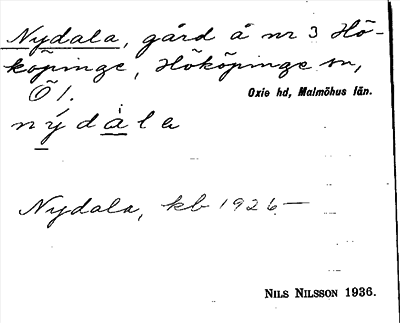 Nydala, gård å nr 3 Hö-
köpinge, Hököpinge sn,
Öl.
Oxie hd, Malmöhus län.
nýdàla
Nydala, kb 1926.—
NILS NILSSON 1936.